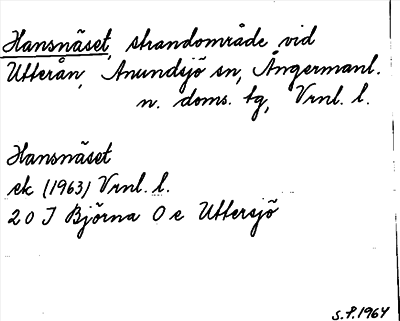 Hansnäset, strandområde vid
Utterån, Anundsjö sn, Ångermanl.
n. doms. tg, Vrnl. l.
Hansnäset
ek (1963) Vrnl. l.
20 I Björna 0 e Uttersjö
S.P. 1964